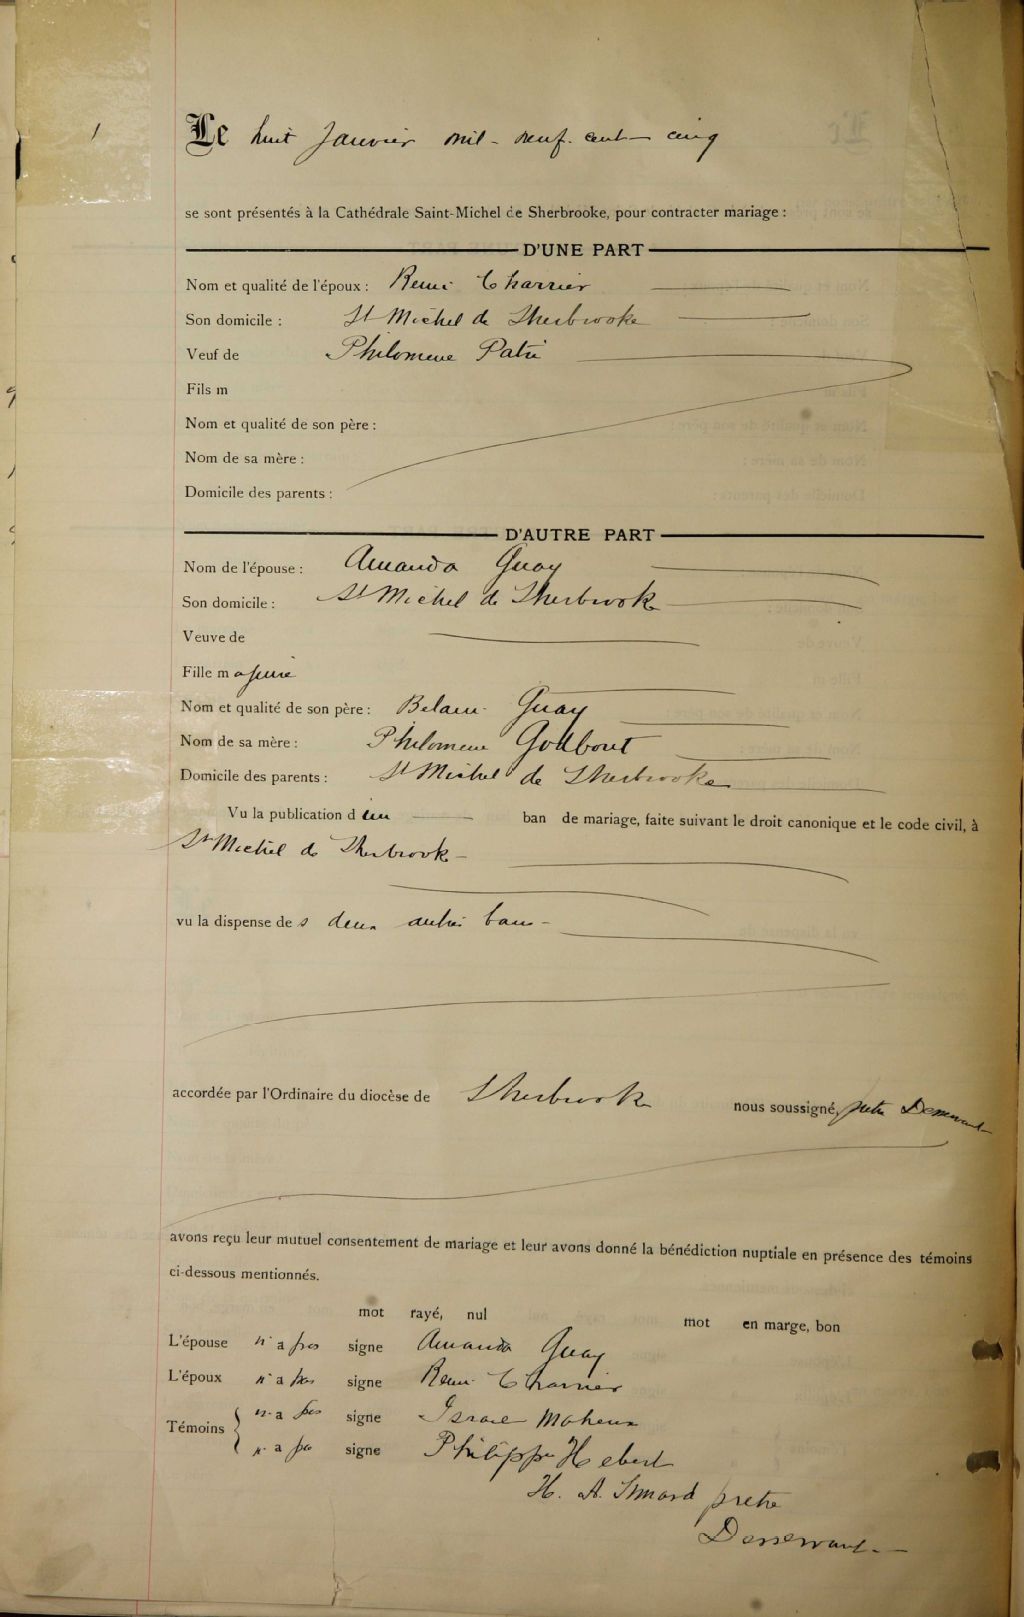 1
Le huit Janvier mil - neuf - cent - cinq
se sont présentés à la Cathédrale Saint-Michel de Sherbrooke, pour contracter mariage :
D'UNE PART
Nom et qualité de l'époux : Remi Charrier
Son domicile : St Michel de Sherbrooke
Veuf de Philomene Patri
Fils m
Nom et qualité de son père :
Nom de sa mère :
Domicile des parents :
D'AUTRE PART
Nom de l'épouse : Amanda Guay
Son domicile : St Michel de Sherbrooke
Veuve de
Fille majeure
Nom et qualité de son père : Guay
Nom de sa mère : Philomene Godbout
Domicile des parents : St Michel de Sherbrooke
Vu la publication d'un ban de mariage, faite suivant le droit canonique et le code civil, à
St Michel de Sherbrooke -
vu la dispense des deux autres bans -
accordée par l'Ordinaire du diocèse de Sherbrooke nous soussigné, prêtre Desservant
avons reçu leur mutuel consentement de mariage et leur avons donné la bénédiction nuptiale en présence des témoins
ci-dessous mentionnés.
mot rayé, nul mot en marge, bon
L'épouse n'a pas signé Amanda Guay
L'époux n'a pas signé Remi Charrier
Témoins n'a pas signé Israel Maheux
n'a pas signé Philippe Hebert
H. A. Simard prêtre
Desservant -